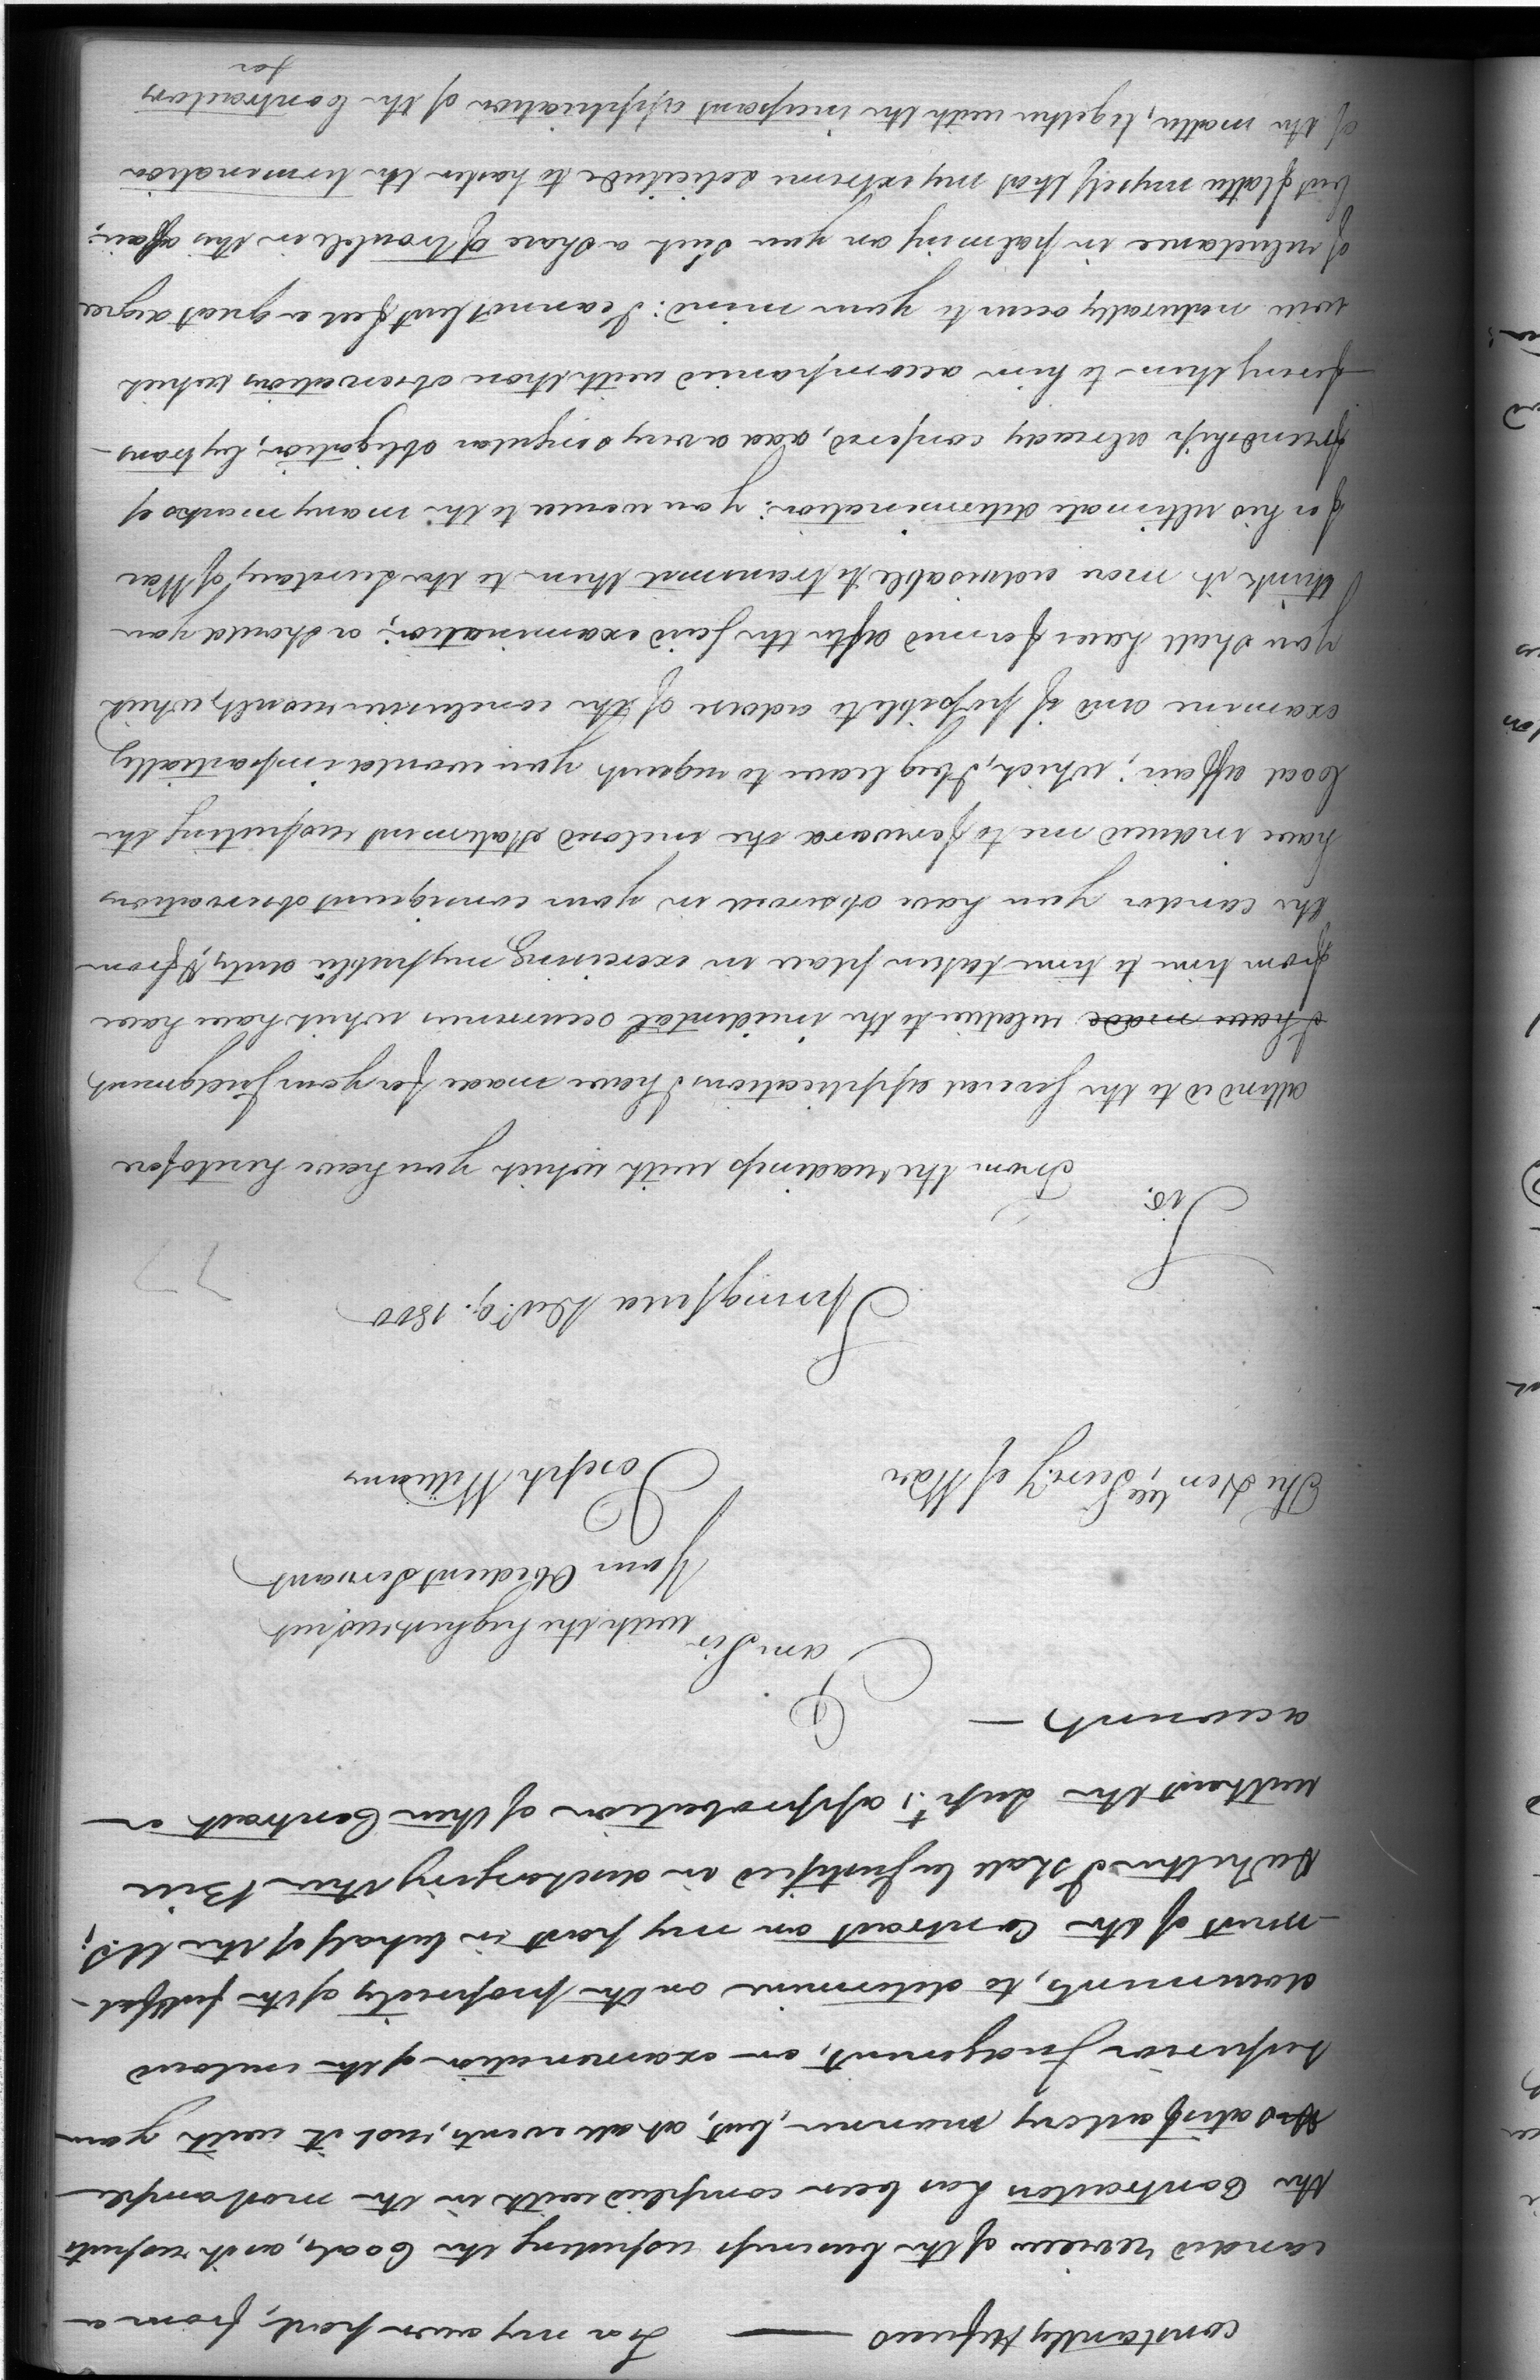 constantly refused — For my own part, from a
candid review of the business respecting the Coals, as it respects
the Contractors has been complied with in the most ample
satisfactory manner, but, at all events, rest it with your
superior Judgment, on examination of the inclosed
documents, to determine on the propriety of the fulfil-
-ment of the Contract on my part in behalf of the U.S;
& whether I shall be Justified in discharging their Bill
without the dept.s approbation of their Contract or
accounts —
I
am Sir
with the highest respect
Your Obedient Servant
Joseph Williams
The Honble Secrey of War
Springfield Decr 9. 1800
77
Sir.
From the readiness with which you have heretofore
attended to the several applications I have made for your Judgment
I have made relative to the incidental occurrences which have
from time to time taken place in exercising my public duty, & from
the candor you have observed in your consequent observations
have induced me to forward the inclosed statement respecting the
Coal affair; which, I beg leave to request you would impartially
examine and if possible to advise of the conclusive result, which
you shall have formed after the said examination; or should you
think it more adviseable to transmit them to the Secretary of War
for his ultimate determination; you would to the many marks of
friendship already confered, add a very singular obligation, by trans-
-fering them to him accompanied with those observations which
will naturally occur to your mind: I cannot but feel a great degree
of reluctance in palming on you such a share of trouble in this affair;
but flatter myself that my extreme solicitude to hasten the termination
of the matter, together with the incessant application of the Contractors
for